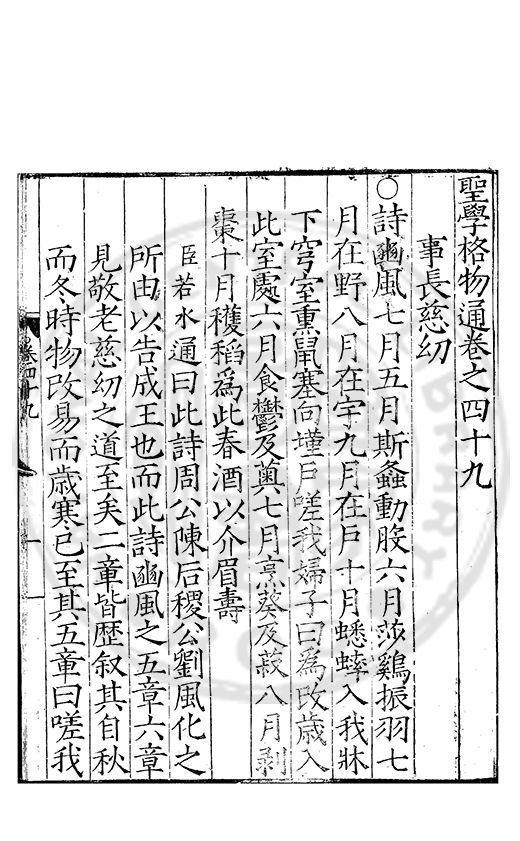 聖學格物通卷之四十九
事長慈幼
○詩豳風七月五月斯螽動股六月莎鷄振羽七
月在野八月在宇九月在戶十月蟋蟀入我牀
下穹室熏鼠塞向墐戶嗟我婦子曰爲改歲入
此室處六月食鬱及薁七月烹葵及菽八月剥
棗十月穫稻爲此春酒以介眉壽
臣若水通曰此詩周公陳后稷公劉風化之
所由以告成王也而此詩豳風之五章六章
見敬老慈幼之道至矣二章皆歴叙其自秋
而冬時物改易而歲寒已至其五章曰嗟我
卷四十九
一